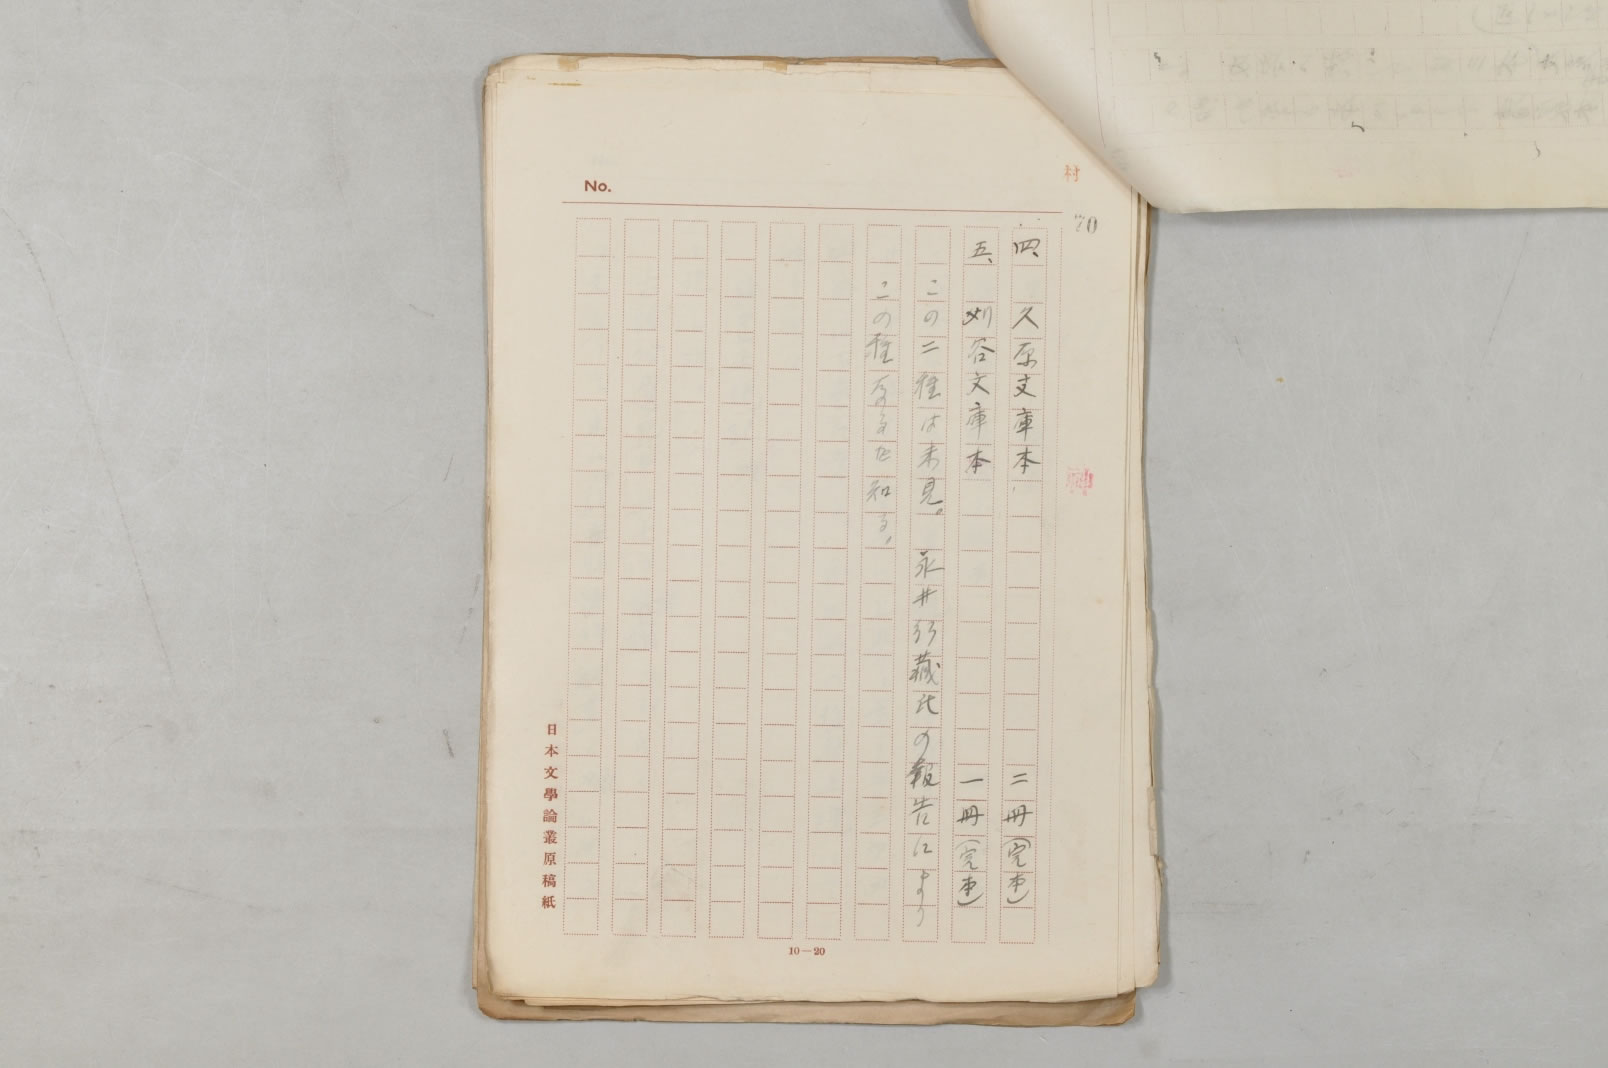 No.
村
70
神
四、久原文庫本 二冊(完本)
五、刈谷文庫本 一冊(完本)
この二種は未見。永井行藏氏の報告により
この種なるを知る。
日本文學論叢原稿紙
10—20